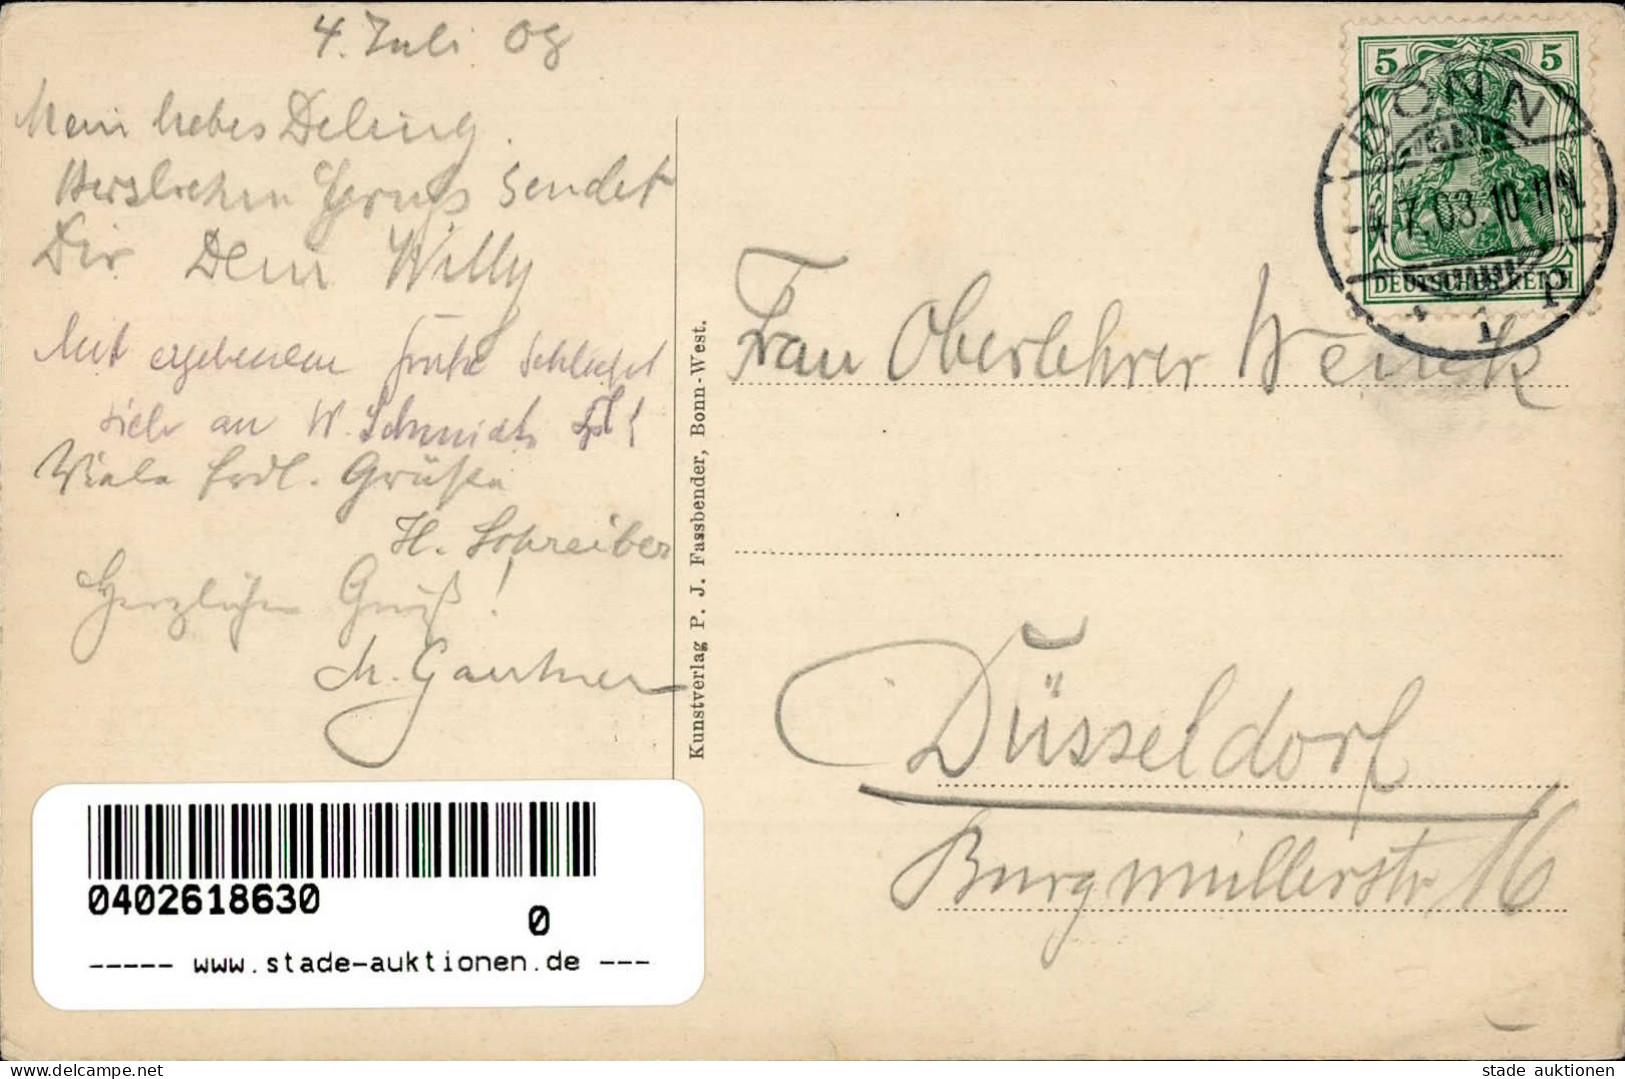 4. Juli 08
Mein liebes Deling.
Herzlichen Gruss sendet
Dir Dein Willy
Mit ergebenem Gruße schließt
sich an W. Schmidt
Viele frdl. Grüße
H. Schreiber
Herzlichen Gruß!
M. Gautner
Kunstverlag P. J. Fassbender, Bonn-West.
5 5
BONN
-4.7.08. 10-11 N.
DEUTSCHES REICH
* 1 p
Frau Oberlehrer Wenck
Düsseldorf
Burgmüllerstr 16
0402618630
0
----- www.stade-auktionen.de ---
stade auktionen
delcampe.net